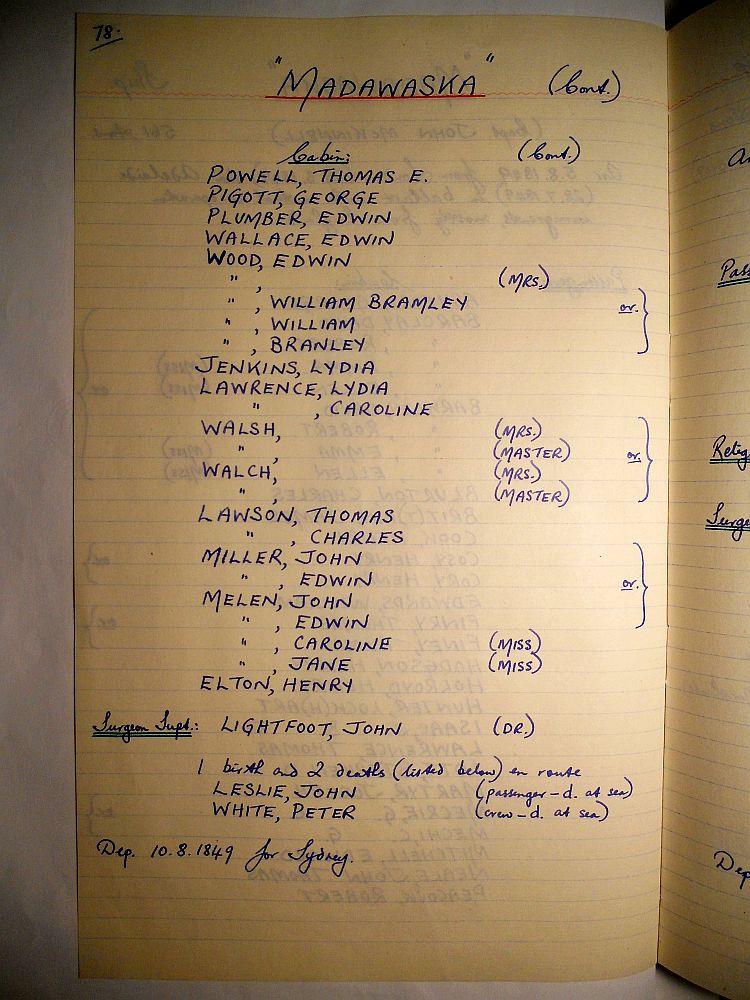 78.
"MADAWASKA" (Cont.)
Cabin: (Cont.)
POWELL, THOMAS E.
PIGOTT, GEORGE
PLUMBER, EDWIN
WALLACE, EDWIN
WOOD, EDWIN
" , (MRS.)
" , WILLIAM BRAMLEY or.
" , WILLIAM
" , BRANLEY
JENKINS, LYDIA
LAWRENCE, LYDIA
" , CAROLINE
WALSH, (MRS.)
" , (MASTER) or.
WALCH, (MRS.)
" , (MASTER)
LAWSON, THOMAS
" , CHARLES
MILLER, JOHN
" , EDWIN or.
MELEN, JOHN
" , EDWIN
" , CAROLINE (MISS)
" , JANE (MISS)
ELTON, HENRY
Surgeon Supt.: LIGHTFOOT, JOHN (DR.)
1 birth and 2 deaths (listed below) en route
LESLIE, JOHN (passenger - d. at sea)
WHITE, PETER (crew - d. at sea)
Dep. 10.8.1849 for Sydney.